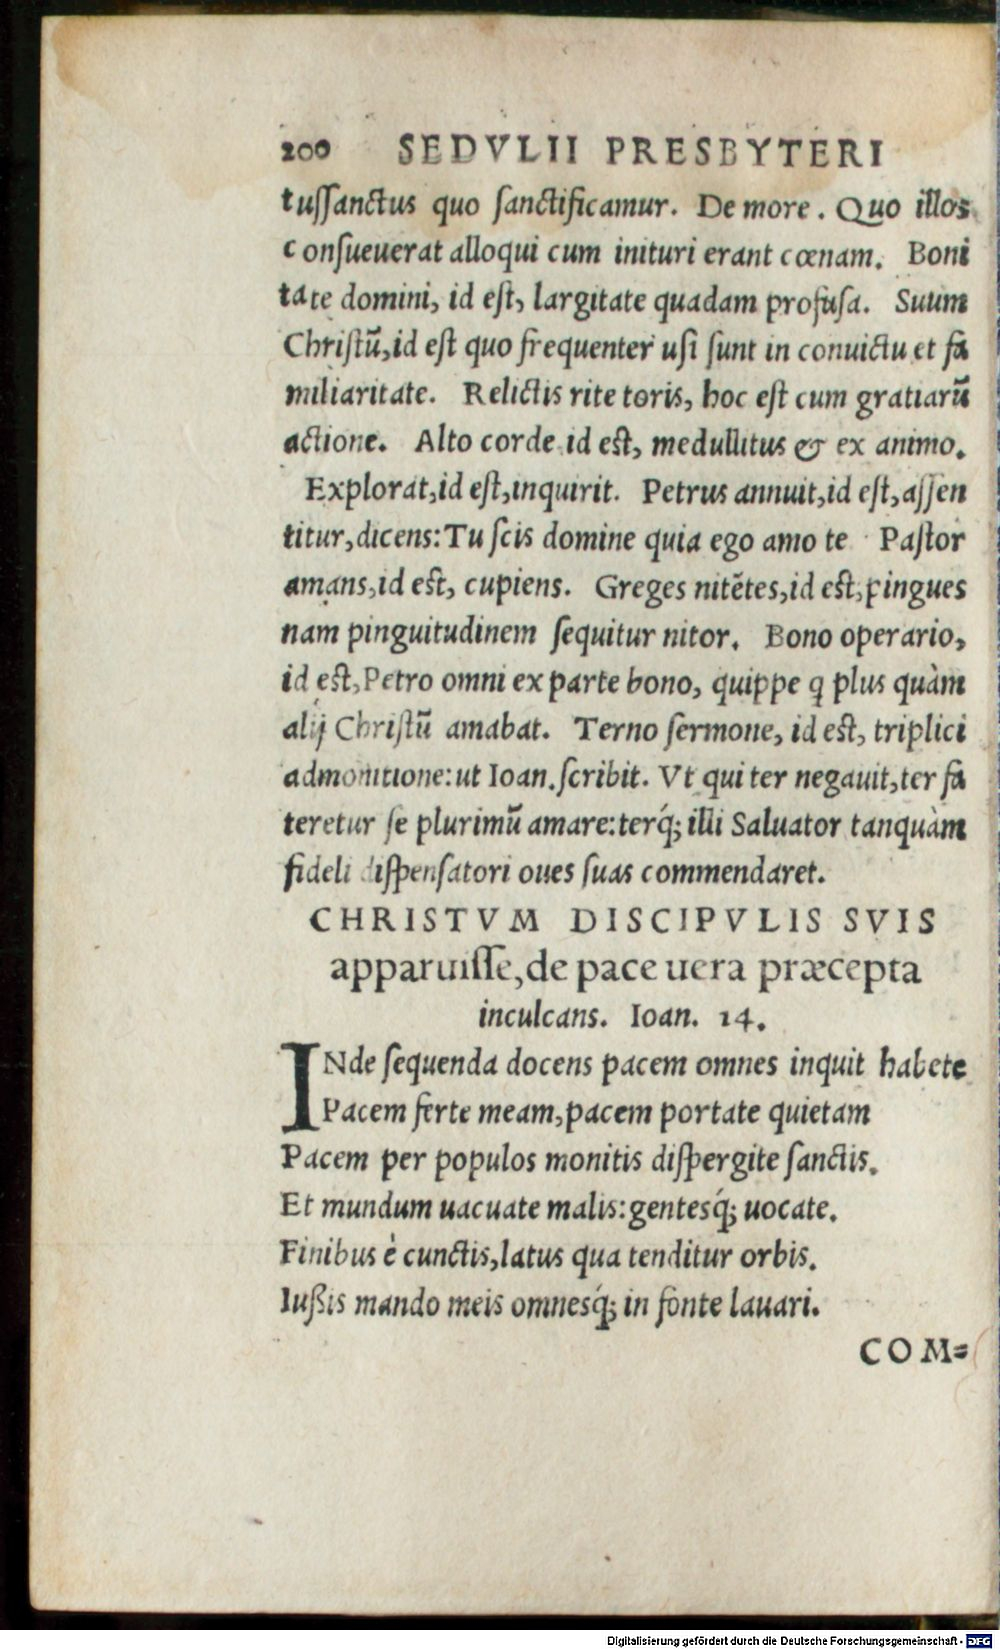 200 SEDVLII PRESBYTERI
tuſſanctus quo ſanctificamur. De more. Quo illos
conſueuerat alloqui cum inituri erant cœnam. Boni
tate domini, id eſt, largitate quadam profuſa. Suum
Chriſtũ, id eſt quo frequenter uſi ſunt in conuictu et fa
miliaritate. Relictis rite toris, hoc eſt cum gratiarũ
actione. Alto corde id eſt, medullitus & ex animo.
Explorat, id eſt, inquirit. Petrus annuit, id eſt, aſſen
titur, dicens: Tu ſcis domine quia ego amo te Paſtor
amans, id eſt, cupiens. Greges nitẽtes, id eſt, pingues
nam pinguitudinem ſequitur nitor. Bono operario,
id eſt, Petro omni ex parte bono, quippe q plus quàm
alij Chriſtũ amabat. Terno ſermone, id eſt, triplici
admonitione: ut Ioan. ſcribit. Vt qui ter negauit, ter fa
teretur ſe plurimũ amare: terq́; illi Saluator tanquàm
fideli diſpenſatori oues ſuas commendaret.
CHRISTVM DISCIPVLIS SVIS
apparuiſſe, de pace uera præcepta
inculcans. Ioan. 14.
INde ſequenda docens pacem omnes inquit habete
Pacem ferte meam, pacem portate quietam
Pacem per populos monitis diſpergite ſanctis.
Et mundum uacuate malis: gentesq́; uocate.
Finibus è cunctis, latus qua tenditur orbis.
Iußis mando meis omnesq́; in fonte lauari.
COM=
Digitalisierung gefördert durch die Deutsche Forschungsgemeinschaft - DFG